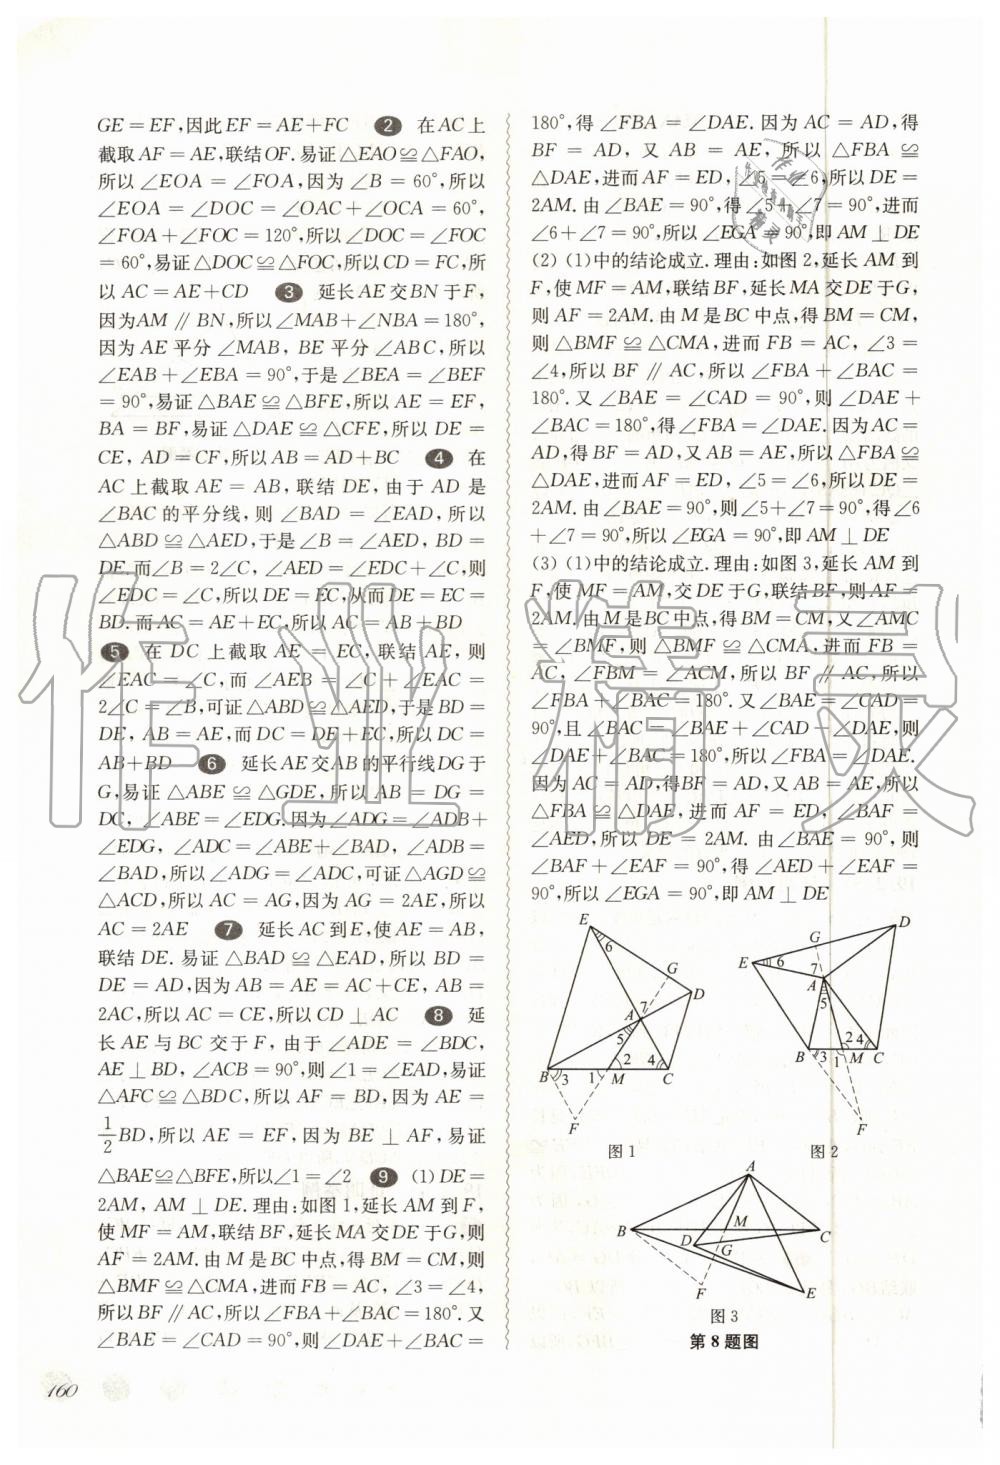 GE＝EF,因此EF＝AE＋FC ❷ 在AC上
截取AF＝AE,联结OF.易证△EAO≌△FAO,
所以∠EOA＝∠FOA,因为∠B＝60°,所以
∠EOA＝∠DOC＝∠OAC＋∠OCA＝60°,
∠FOA＋∠FOC＝120°,所以∠DOC＝∠FOC
＝60°,易证△DOC≌△FOC,所以CD＝FC,所
以AC＝AE＋CD ❸ 延长AE交BN于F,
因为AM∥BN,所以∠MAB＋∠NBA＝180°,
因为AE平分∠MAB, BE平分∠ABC,所以
∠EAB＋∠EBA＝90°,于是∠BEA＝∠BEF
＝90°,易证△BAE≌△BFE,所以AE＝EF,
BA＝BF,易证△DAE≌△CFE,所以DE＝
CE, AD＝CF,所以AB＝AD＋BC ❹ 在
AC上截取AE＝AB,联结DE,由于AD是
∠BAC的平分线,则∠BAD＝∠EAD,所以
△ABD≌△AED,于是∠B＝∠AED, BD＝
DE.而∠B＝2∠C, ∠AED＝∠EDC＋∠C,则
∠EDC＝∠C,所以DE＝EC,从而DE＝EC＝
BD.而AC＝AE＋EC,所以AC＝AB＋BD
❺ 在DC上截取AE＝EC,联结AE,则
∠EAC＝∠C,而∠AEB＝∠C＋∠EAC＝
2∠C＝∠B,可证△ABD≌△AED,于是BD＝
DE, AB＝AE,而DC＝DE＋EC,所以DC＝
AB＋BD ❻ 延长AE交AB的平行线DG于
G,易证△ABE≌△GDE,所以AB＝DG＝
DC, ∠ABE＝∠EDG.因为∠ADG＝∠ADB＋
∠EDG, ∠ADC＝∠ABE＋∠BAD, ∠ADB＝
∠BAD,所以∠ADG＝∠ADC,可证△AGD≌
△ACD,所以AC＝AG,因为AG＝2AE,所以
AC＝2AE ❼ 延长AC到E,使AE＝AB,
联结DE.易证△BAD≌△EAD,所以BD＝
DE＝AD,因为AB＝AE＝AC＋CE, AB＝
2AC,所以AC＝CE,所以CD⊥AC ❽ 延
长AE与BC交于F,由于∠ADE＝∠BDC,
AE⊥BD, ∠ACB＝90°,则∠1＝∠EAD,易证
△AFC≌△BDC,所以AF＝BD,因为AE＝
1/2 BD,所以AE＝EF,因为BE⊥AF,易证
△BAE≌△BFE,所以∠1＝∠2 ❾ (1)DE＝
2AM, AM⊥DE.理由:如图1,延长AM到F,
使MF＝AM,联结BF,延长MA交DE于G,则
AF＝2AM.由M是BC中点,得BM＝CM,则
△BMF≌△CMA,进而FB＝AC, ∠3＝∠4,
所以BF∥AC,所以∠FBA＋∠BAC＝180°.又
∠BAE＝∠CAD＝90°,则∠DAE＋∠BAC＝
160
180°,得∠FBA＝∠DAE.因为AC＝AD,得
BF＝AD,又AB＝AE,所以△FBA≌
△DAE,进而AF＝ED, ∠5＝∠6,所以DE＝
2AM.由∠BAE＝90°,得∠5＋∠7＝90°,进而
∠6＋∠7＝90°,所以∠EGA＝90°,即AM⊥DE
(2) (1)中的结论成立.理由:如图2,延长AM到
F,使MF＝AM,联结BF,延长MA交DE于G,
则AF＝2AM.由M是BC中点,得BM＝CM,
则△BMF≌△CMA,进而FB＝AC, ∠3＝
∠4,所以BF∥AC,所以∠FBA＋∠BAC＝
180°.又∠BAE＝∠CAD＝90°,则∠DAE＋
∠BAC＝180°,得∠FBA＝∠DAE.因为AC＝
AD,得BF＝AD,又AB＝AE,所以△FBA≌
△DAE,进而AF＝ED, ∠5＝∠6,所以DE＝
2AM.由∠BAE＝90°,则∠5＋∠7＝90°,得∠6
＋∠7＝90°,所以∠EGA＝90°,即AM⊥DE
(3) (1)中的结论成立.理由:如图3,延长AM到
F,使MF＝AM,交DE于G,联结BF,则AF＝
2AM.由M是BC中点,得BM＝CM,又∠AMC
＝∠BMF,则△BMF≌△CMA,进而FB＝
AC, ∠FBM＝∠ACM,所以BF∥AC,所以
∠FBA＋∠BAC＝180°.又∠BAE＝∠CAD＝
90°,且∠BAC＝∠BAE＋∠CAD－∠DAE,则
∠DAE＋∠BAC＝180°,所以∠FBA＝∠DAE.
因为AC＝AD,得BF＝AD,又AB＝AE,所以
△FBA≌△DAE,进而AF＝ED, ∠BAF＝
∠AED,所以DE＝2AM.由∠BAE＝90°,则
∠BAF＋∠EAF＝90°,得∠AED＋∠EAF＝
90°,所以∠EGA＝90°,即AM⊥DE
E 6 G D 7 A 5 2 4 B 3 1 M C F
图1
D G E 6 7 A 5 2 4 B 3 1 M C F
图2
A B M C D G F E
图3
第8题图
作业精灵